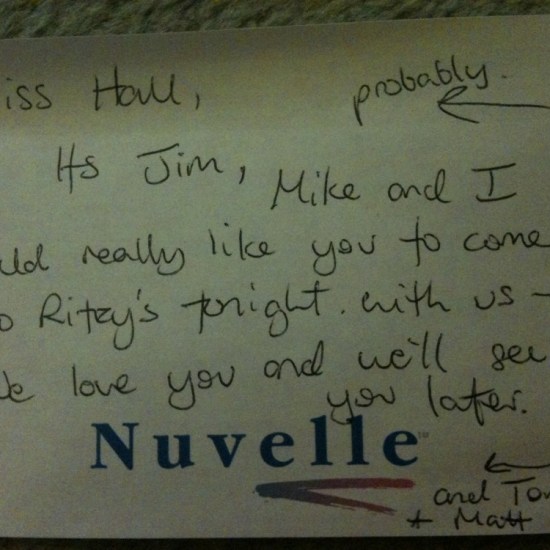 iss Hall,
probably.
Its Jim, Mike and I
uld really like you to come
o Ritzy's tonight. with us -
e love you and we'll see
you later.
Nuvelle™
and Tom
+ Matt